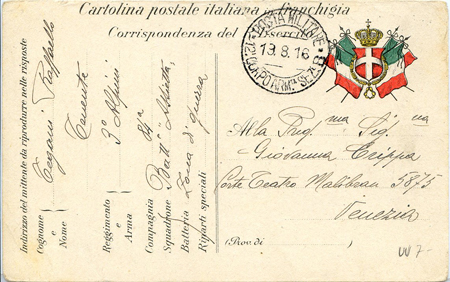 Cartolina postale italiana in franchigia
Corrispondenza del R. Esercito
POSTA MILITARE
13.8.16
Indirizzo del mittente da riprodurre nelle risposte
Cognome e Nome Tegani Raffaello
Tenente
Reggimento e Arma 3° Alpini
Compagnia 84ª
Squadrone Batt.
Batteria Zona di guerra
Riparti speciali
Alla Preg.ma Sig.na
Giovanna Crippa
Corte Teatro Malibran 5875
Venezia
(Prov. di